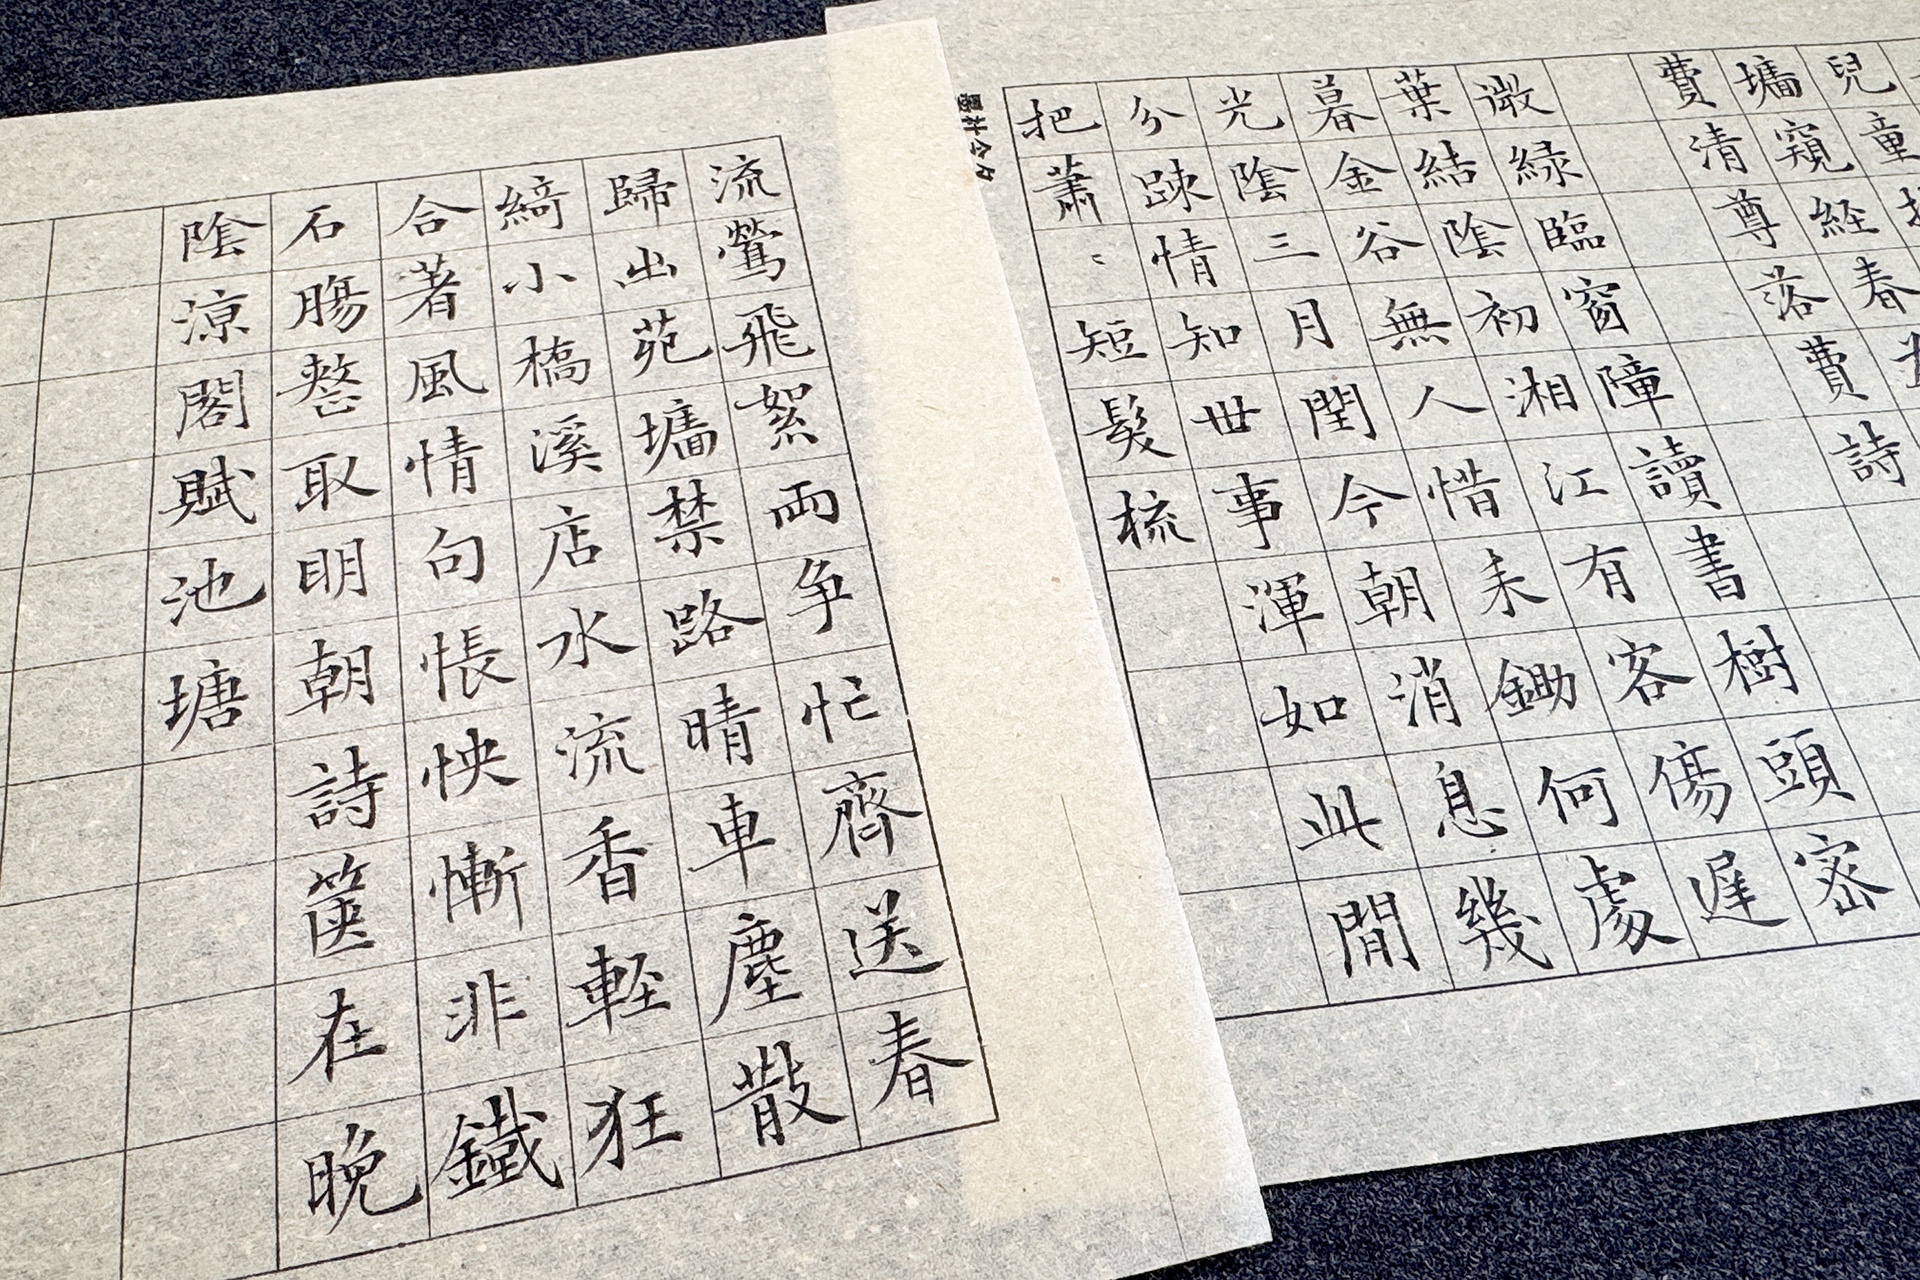 兒童
墻窺経春
費清尊落費詩
微緑臨窗障讀書樹頭密
葉結陰初湘江有客傷遲
暮金谷無人惜未鋤何處
光陰三月閏今朝消息幾
分踈情知世事渾如此閒
把蕭、短髮梳
流鶯飛絮両争忙齊送春
歸出苑墻禁路晴車塵散
綺小橋溪店水流香軽狂
合著風情句悵怏慚非鐵
石腸整取明朝詩篋在晚
陰涼閣賦池塘